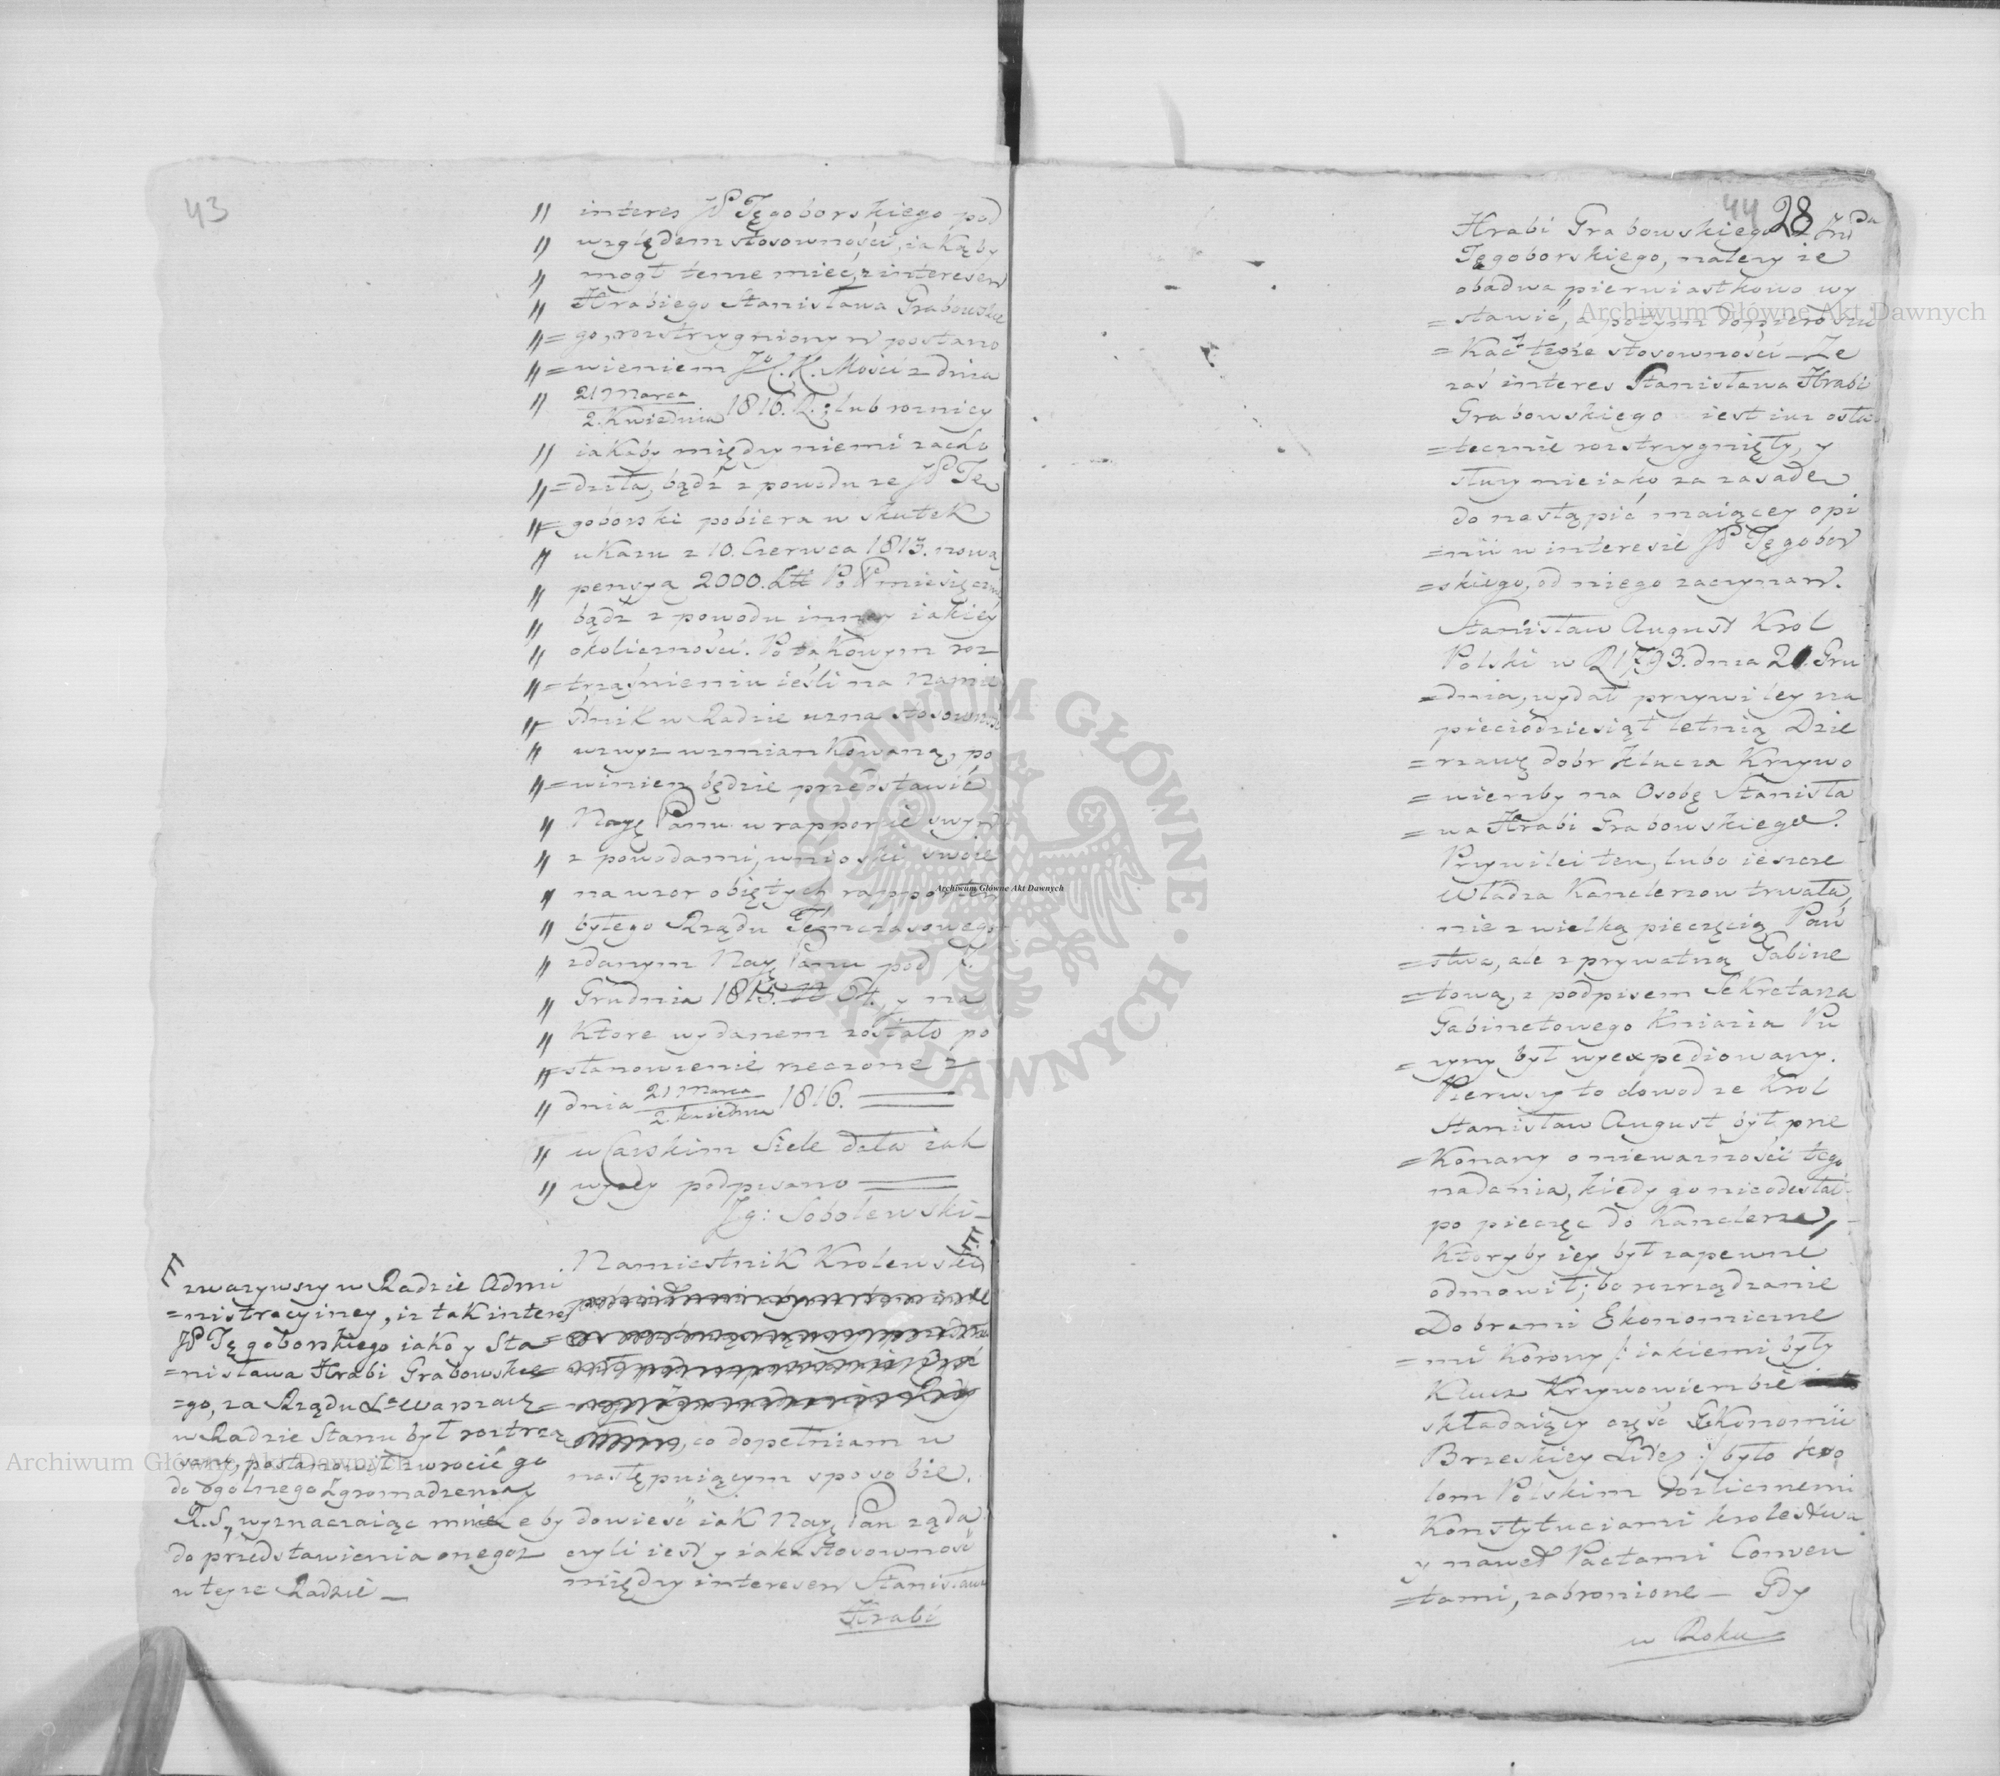 43
" interes JP Tęgoborskiego pod
" względem stosowności, iakąby
" mogł tenże mieć, z interesem
" Hrabiego Stanisława Grabowskie
"= go, rozstrzygniony w postano
"= wieniem J. K. Mości z dnia
" 21 Marca / 2. Kwietnia 1816. R.; lub roznicy
" iakaby między niemi zacho
"= dziła, bądź z powodu ze JP Tę
"= goborski pobiera w skutek
" ukazu z 10. Czerwca 1813. nową
" pensyą 2000. miesięczn
" bądź z powodu inney iakiey
" okoliczności. Po takowym roz
"= trząśnieniu ieśli na Namie
"= stnik w Radzie uzna stosowność
" wzwyz wzmiankowaną, po
"= winien będzie przedstawić
" Nayę Panu w rapporcie swym
" z powodami, wnioski swoie
" na wzor obiętych rapportem
" byłego Rządu Temczasowego
" zdanym Nayę Panu pod
" Grudnia 1815. y na
" Ktore wydanem zostało po
"= stanowienie rzeczone z
" dnia 21 Marca / 2. Kwietnia 1816. ===
" w Carskim Siele data iak
" wyzey podpisano ===
Jg: Sobolewski
E.
Namiestnik Krolewski
co dopełniam w
następuiącym sposobie.
dowieść iak Nayę Pan ząda
czyli iest y iaka stosowność
między interesem Stanisława
Hrabi
E zwazywszy w Radzie Admi
=nistracyiney, iz tak interes
JP Tęgoborskiego iako y Sta
=nisława Hrabi Grabowskie
=go, za Rządu Xa Warszaw:
w Radzie Stanu był roztrzą
sany, postanowił zwrocić go
do ogolnego Zgromadzenia
R. S., wyznaczaiąc mnie eby
do przedstawienia onegoz
w teyze Radzie —
44 28
Hrabi Grabowskiego
Tęgoborskiego, nalezy ie
obadwa pierwiastkowo wy
= stawić, a potym dopiero szu
= Kać teyże stosowności — Ze
zaś interes Stanisława Hrabi
Grabowskiego iest iuz osta
= tecznie rozstrzygnięty, y
słuzy nieiako za zasadę
do nastąpić maiącey opi
= nii w interesie JP Tęgobor
= skiego, od niego zaczynam.
Stanisław August Krol
Polski w R 1793. dnia 21. Gru
= dnia, wydał przywiley na
piecidziesiąt letnią Dzie
= rzawę dobr Klucza Krzywo
= wierzby na Osobę Stanisła
= wa Hrabi Grabowskiego.
Przywilei ten, lubo ieszcze
Władza Kanclerzow trwała,
nie z wielką pieczęcią Pań
= stwa, ale z prywatną Gabine
= tową, z podpisem Sekretarza
Gabinetowego Kniazia Pu
= zyny był wyexpediowany.
Pierwszy to dowod ze Krol
Stanisław August był prze
= Konany o niewazności tego
nadania, kiedy go nieodesłał
po pieczęc do Kanclerza,
Ktoryby iey był zapewne
odmowił; bo rozrządzanie
Dobrami Ekonomiczne
= mi Korony /: iakiemi były
Klucz Krzywowierzbie
składaiący część Ekonomii
Brzeskiey Litey :/ było kro
lom Polskim rozlicznemi
Konstytuciami krolestwa
y nawet Pactami Conven
= tami, zabronione — Gdy
w Roku